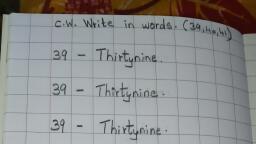 C.W. Write in words. (39,40,41)
39 - Thirtynine.
39 - Thirtynine.
39 - Thirtynine.